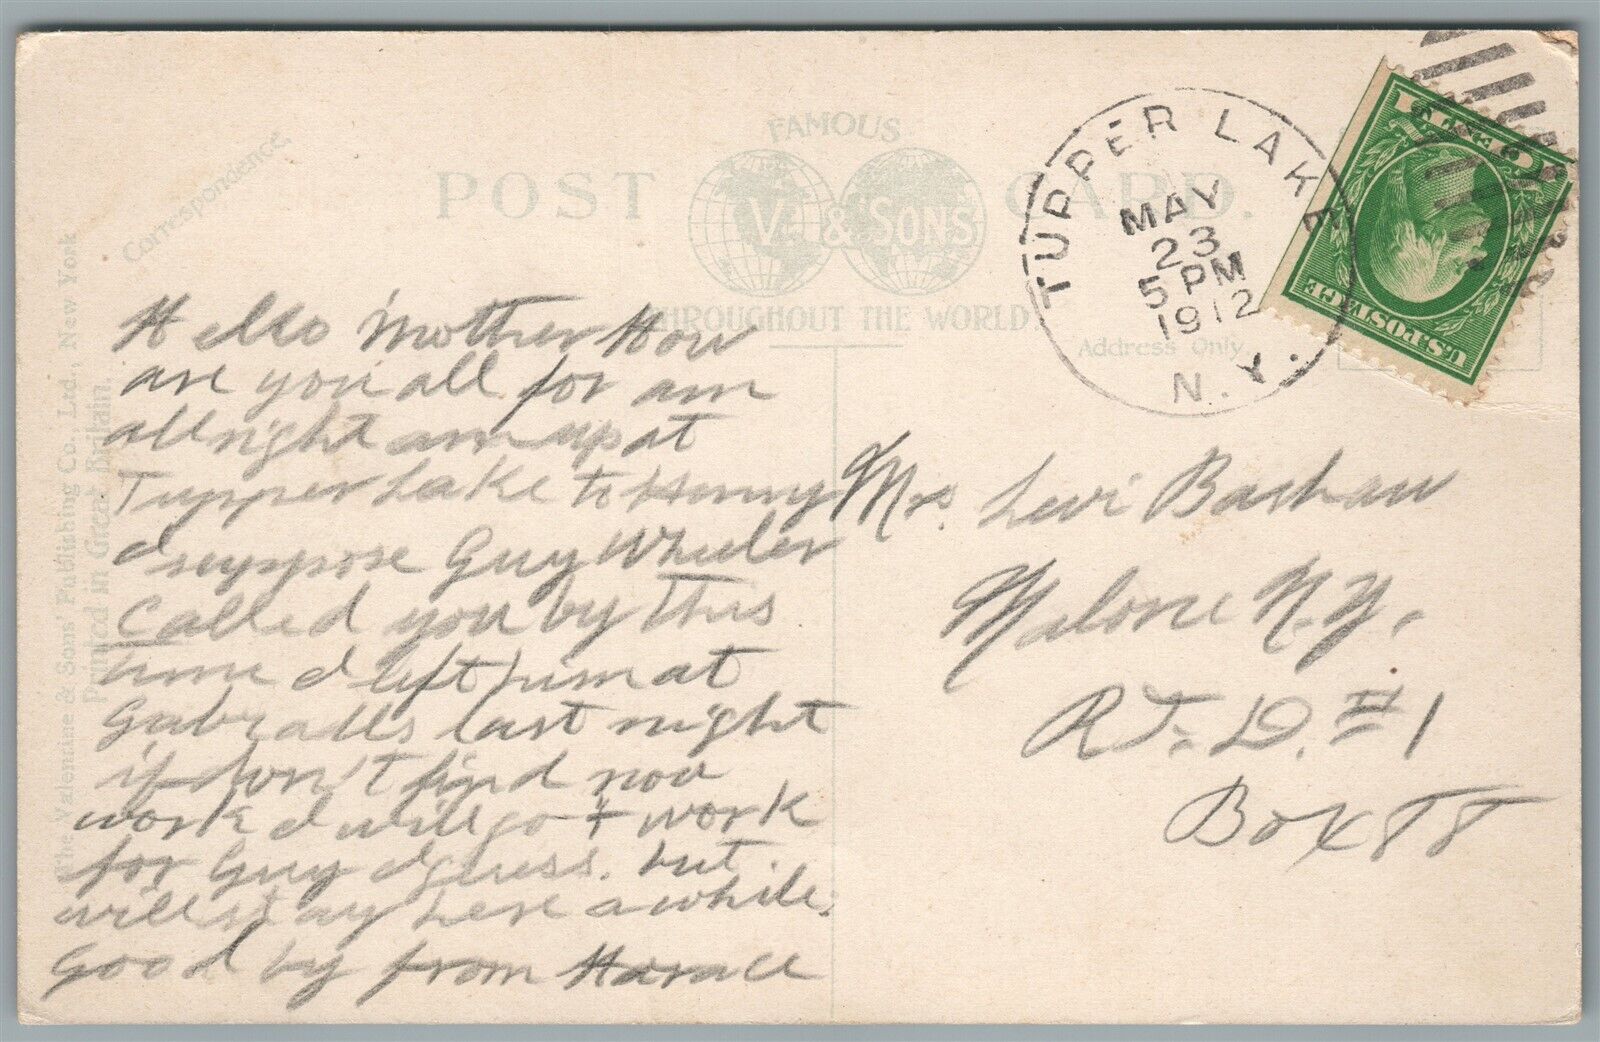 Correspondence.
POST CARD.
FAMOUS
V. & SONS
THROUGHOUT THE WORLD.
Address Only
The Valentine & Sons' Publishing Co., Ltd., New York
Printed in Great Britain.
TUPPER LAKE
MAY
23
5 PM
1912
N.Y.
U.S. POSTAGE
Hello Mother How
are you all for am
allright am up at
Tupper Lake to Henry
I suppose Guy Wheeler
Called you by This
time I left him at
last night
if don't find now
work I will go + work
for Guy I guess. but
will stay here a while.
Good by from Horace
Mrs. Levi Bashaw
Malone N.Y.
R.F.D. #1
Box 88